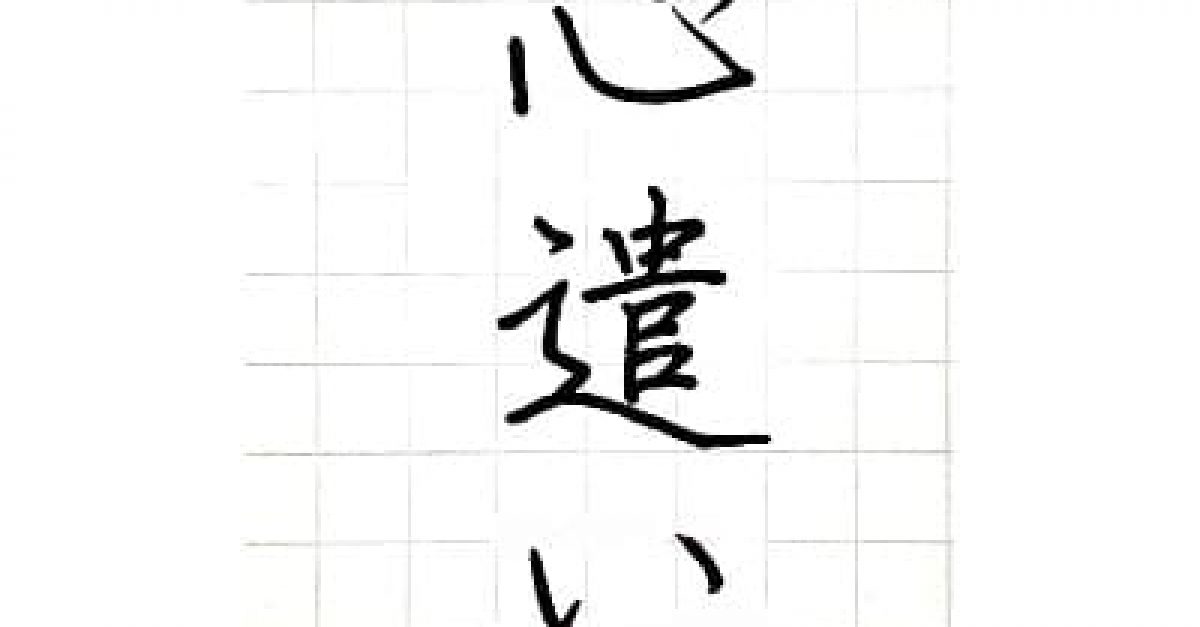 心遣い